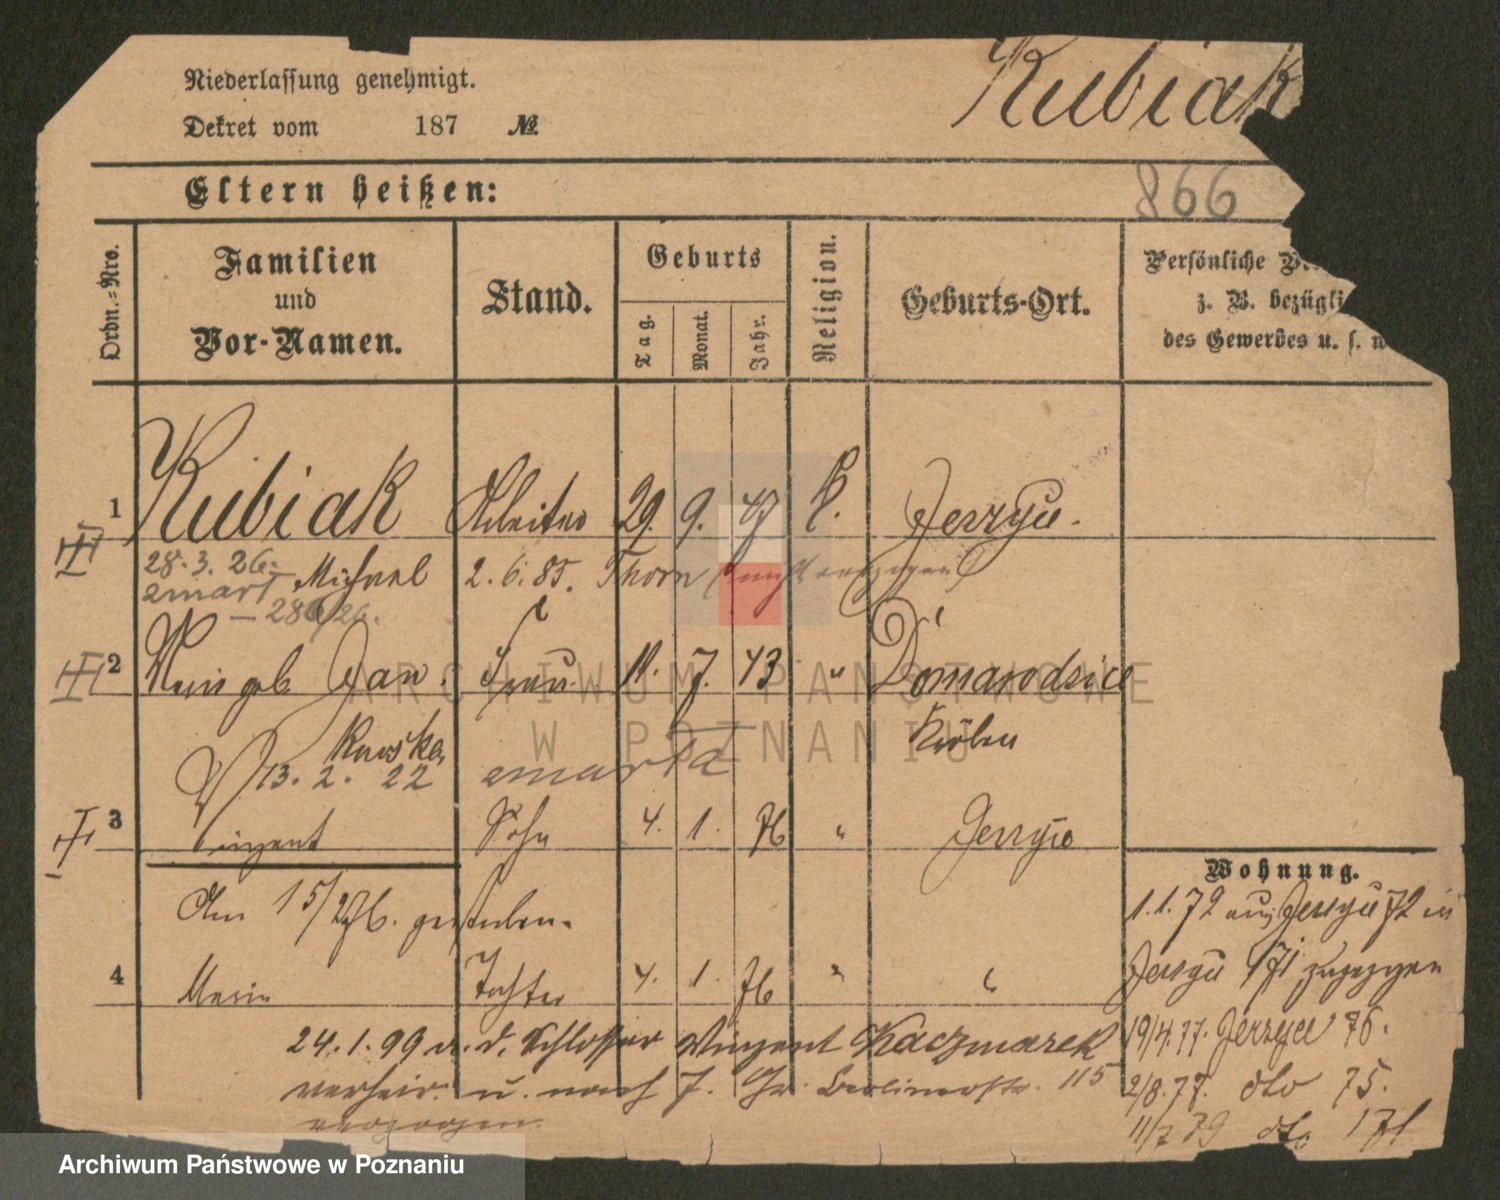 Niederlassung genehmigt.
Kubiak
Dekret vom 187 №
Eltern heißen:
866
Ordn.=Nro.
Familien
und
Vor-Namen.
Stand.
Geburts
Tag.
Monat.
Jahr.
Religion.
Geburts-Ort.
Persönliche
z. B. bezügli
des Gewerbes u. s.
1 Kubiak Arbeiter 29. 9. 47 K. Jerzyce.
III
28.3.26. Michael 2.6.85. Thorn
zmarł
2 geb. Frau 11. 7. 43 " Domarodzice
III
Kröben
13.2. 22 zmarła
3 Vinzent Sohn 4. 1. 76 " Jerzyce
I
Am 15/2 76. gestorben.
4 Marie Tochter 4. 1. 76 " "
24.1.99 a. d. Schlosser Vinzent Kaczmarek
verheir. u. nach J. Gr. Berlinerstr. 115
verzogen.
Wohnung.
1.1.72 aus Jerzyce 72 in
Jerzyce 171 zugezogen
19/4.77. Jerzyce 76.
2/8.77. dto 75.
11/7 79 dto 171
ARCHIWUM PAŃSTWOWE
W POZNANIU
Archiwum Państwowe w Poznaniu